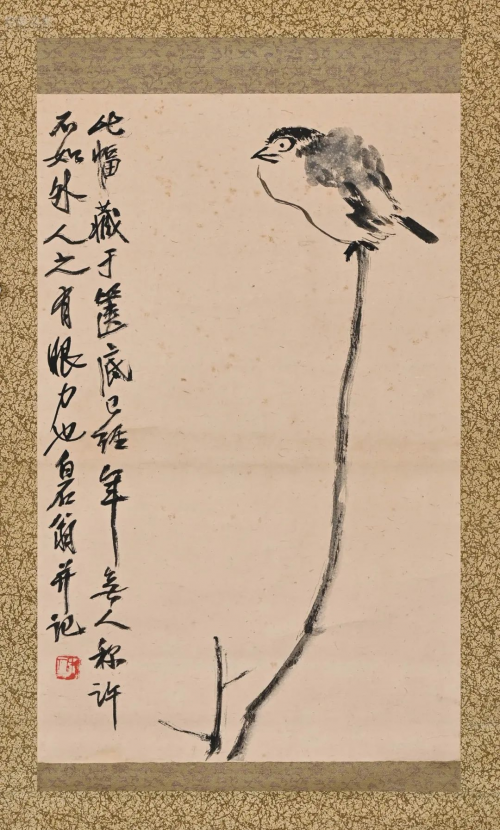 此幅藏于箧底已经年无人称许
不如外人之有眼力也白石翁并记